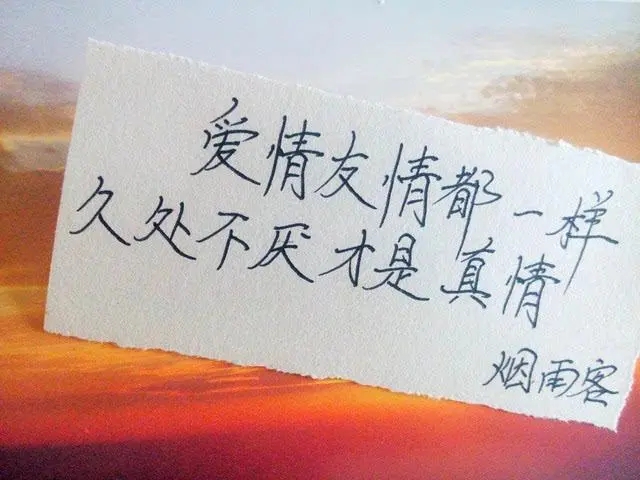 爱情友情都一样
久处不厌才是真情
烟雨客